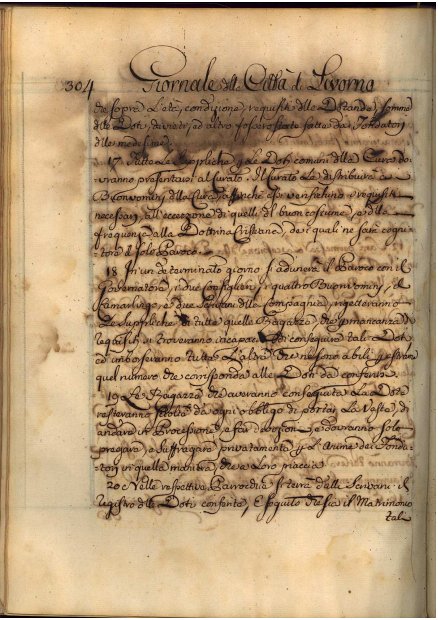 304 Giornale della Città di Livorno
che sopra l'età, condizione, requisiti delle Postulanti, somme
delle Doti, ed altro fosse stato fatto da' Fondatori
delle medesime.
17 Tutte le Suppliche p. le Doti comuni della Cura do-
vranno presentarsi al Curato. Il Curato le distribuirà a'
Buonomini della Cura, affinchè essi verifichino i requisiti
necessari, all'eccezione di quelli del buon costume, e della
frequenza alla Dottrina Cristiana, de' quali ne sarà cogni-
tore il solo Paroco.
18 In un determinato giorno si adunerà il Paroco con il
Governatore, i due Consiglieri, i quattro Buonomini, il
Camarlingo, e due della Compagnia, rigetteranno
le Suppliche di tutte quelle Ragazze, che p. mancanza di
requisiti si troveranno incapaci di conseguire tali Doti,
ed imborseranno tutte l'altre che saranno abili, e estrarran
quel numero che corrisponda alle Doti da conferirsi.
19 Le Ragazze che averanno conseguita la Dote
resteranno sciolte da ogni obbligo di portar la Veste, di
andare a Processione, e far devozioni, e dovranno solo
pregare, e suffragare privatamente p. l'Anime dei Fonda-
tori in quella maniera che a loro piaccia.
20 Nelle respettive Parrocchie si terrà dalli Scrivani il
Registro delle Doti conferite, e seguito che sia il Matrimonio
tal